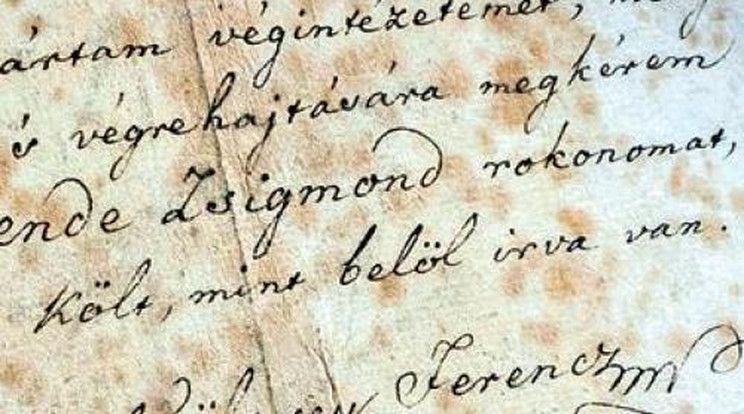 ártam végintézetemet,
és végrehajtására megkérem
ende Zsigmond rokonomat,
Költ, mint belöl irva van.
Ferencz